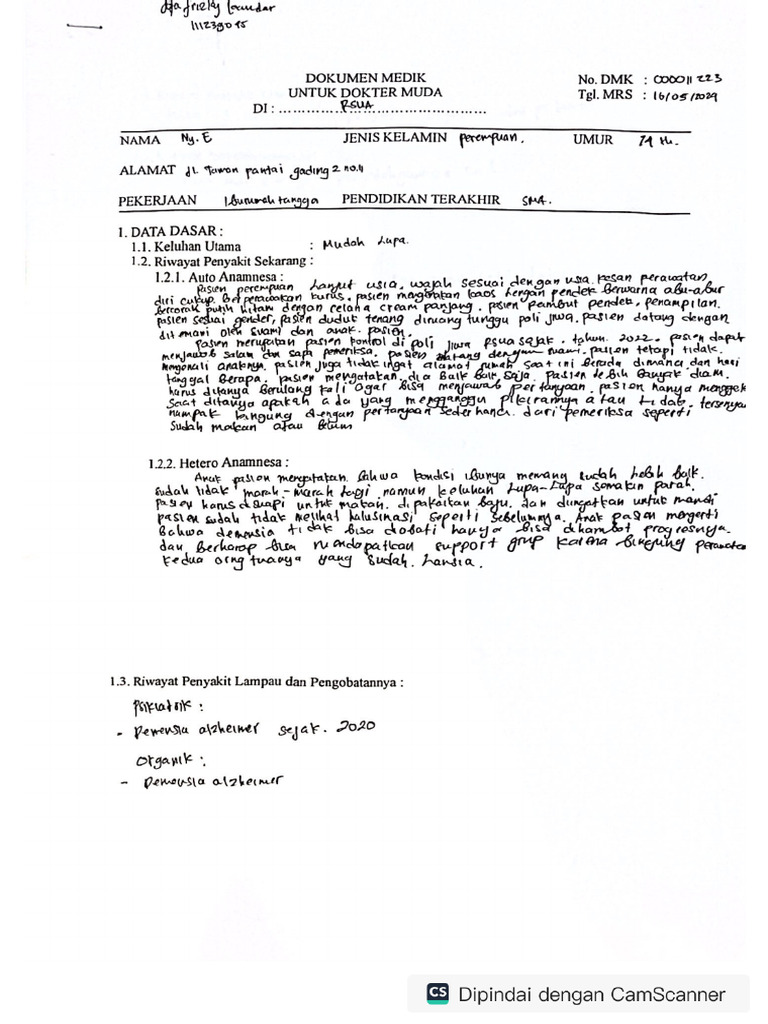 111239015
DOKUMEN MEDIK
UNTUK DOKTER MUDA
DI : ........RSUA........
No. DMK : 000011223
Tgl. MRS : 16/05/2024
NAMA Ny. E JENIS KELAMIN perempuan. UMUR 74 th.
ALAMAT Jl. Tawon pantai gading 2 no.11
PEKERJAAN Iburumah tangga PENDIDIKAN TERAKHIR SMA.
1. DATA DASAR :
1.1. Keluhan Utama : Mudah Lupa.
1.2. Riwayat Penyakit Sekarang :
1.2.1. Auto Anamnesa :
Pasien perempuan Lanjut usia, wajah sesuai dengan usia. kesan perawatan
diri cukup. Berperawakan kurus. pasien mengenakan kaos lengan pendek berwarna abu-abu
bercorak putih hitam dengan celana cream panjang. pasien rambut pendek, penampilan
pasien sesuai gender, pasien duduk tenang diruang tunggu poli jiwa. pasien datang dengan
ditemani oleh suami dan anak pasien.
pasien merupakan pasien kontrol di poli jiwa RSUA sejak. tahun. 2022. pasien dapat
menjawab salam dan sapa pemeriksa. pasien datang dengan suami. pasien tetapi tidak.
mengenali anaknya. pasien juga tidak ingat alamat rumah saat ini berada dimana dan hari
tanggal berapa. pasien mengatakan dia baik baik saja. pasien lebih banyak diam.
harus ditanya berulang kali agar bisa menjawab pertanyaan. pasien hanya
saat ditanya apakah ada yang mengganggu pikirannya atau tidak. tersenyum
nampak bingung dengan pertanyaan sederhana. dari pemeriksa seperti
sudah makan atau belum
1.2.2. Hetero Anamnesa :
Anak pasien mengatakan bahwa kondisi ibunya memang sudah lebih baik.
sudah tidak marah-marah lagi namun keluhan Lupa-Lupa semakin parah.
pasien harus disuapi untuk makan. dipakaikan baju. dan diingatkan untuk mandi
pasien sudah tidak melihat halusinasi seperti sebelumnya. Anak pasien mengerti
bahwa demensia tidak bisa diobati hanya bisa dihambat progresnya.
dan berharap bisa mendapatkan support grup karena bingung perawatan
kedua orng tuanya yang sudah. Lansia.
1.3. Riwayat Penyakit Lampau dan Pengobatannya :
Psikiatrik :
- Demensia alzheimer sejak. 2020
Organik :
- Demensia alzheimer
CS Dipindai dengan CamScanner